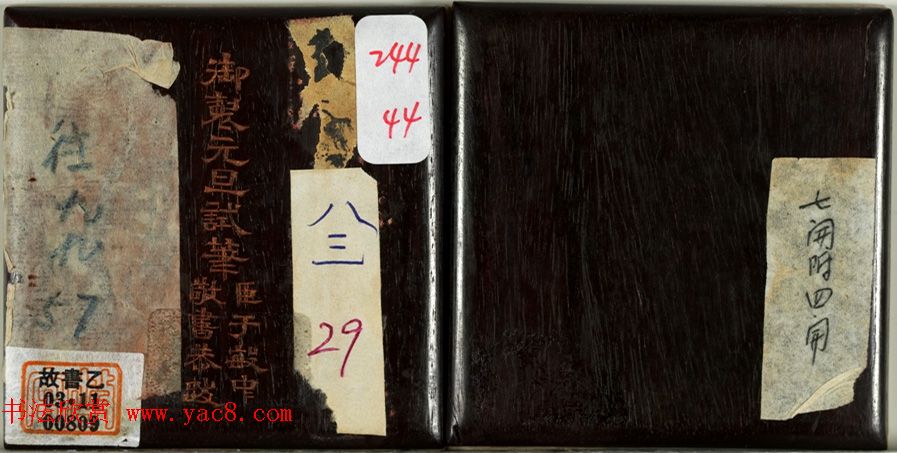 御製元旦試筆
臣于敏中
敬書恭跋
244
44
八三
29
往九九
57
故書乙
03.11
00809
七開附四開
书法欣赏 www.yac8.com